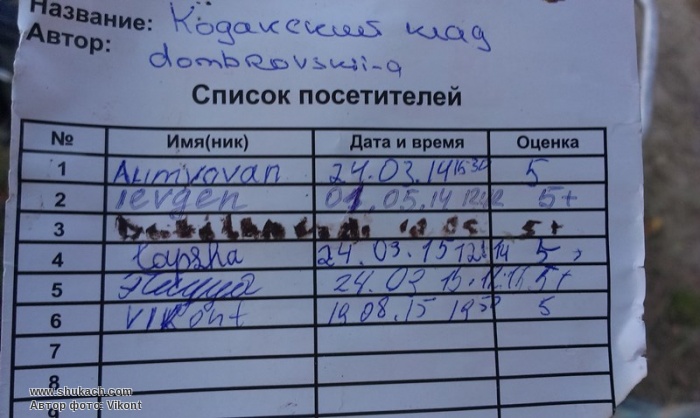 Название: Кодакский клад
Автор: dombrovskii-a
Список посетителей
№ Имя(ник) Дата и время Оценка
1 24.03.14 15 30 5
2 ievgen 01.05.14 5+
3 5+
4 Lapsha 24.03.15 12 14 5
5 24.03.15 5+
6 Vikont 19.08.15 19 50 5
7
8
www.shukach.com
Автор фото: Vikont